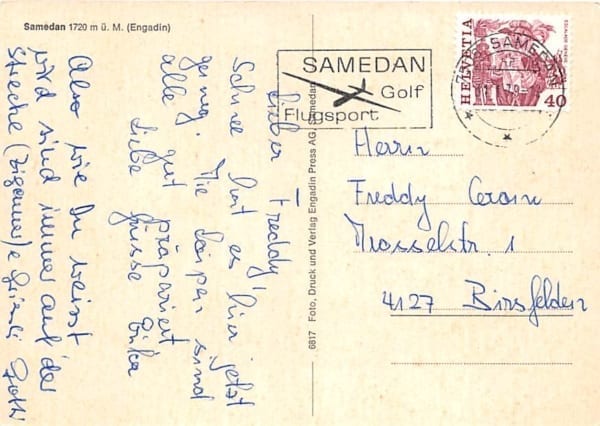 Samedan 1720 m ü. M. (Engadin)
SAMEDAN
Golf
Flugsport
HELVETIA
40
Lieber Freddy,
Schnee hat es hier jetzt
genug. Die Loipen sind
alle gut präpariert
Liebe Grüsse Erika
Also wie Du weisst
wird sind immer auf der
Strecke (Zigeuner)
6817 Foto, Druck und Verlag Engadin Press AG, Samedan
Herrn
Freddy
Mosselstr. 1
4127 Birsfelden